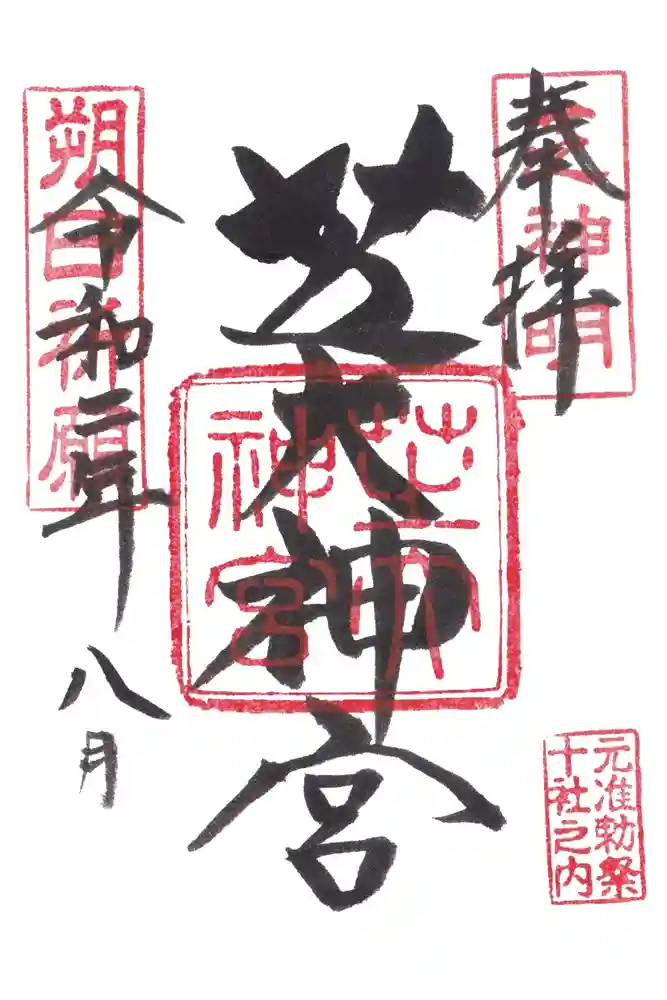 奉拝
神明
芝大神宮
芝大
神宮
朔日祈願
令和二年
八月
元准勅祭
十社之内